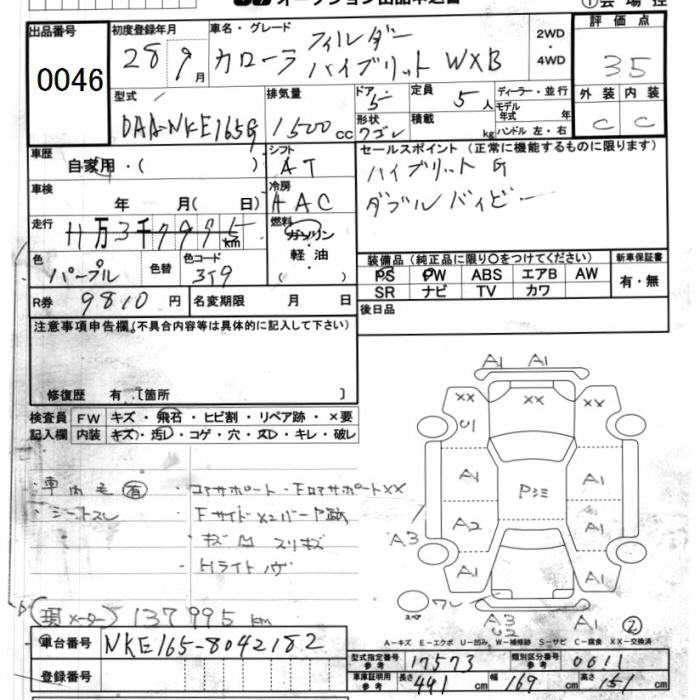 オークション出品申込書
出品番号 初度登録年月 車名・グレード 2WD・4WD 評価点
0046 28 9月 カローラ フィルダー ハイブリット WXB 35
型式 排気量 ドア 5 定員 5人 ディーラー・並行 外装 内装
DAA-NKE165G 1500cc 形状 ワゴン 積載 kg モデル年式 年 ハンドル 左・右 C C
車歴 シフト セールスポイント (正常に機能するものに限ります)
自家用・( ) AT ハイブリット G
車検 冷房
年 月( 日) AAC ダブルバイビー
走行 燃料
11万3千7995km ガソリン・軽油 ( )
装備品 (純正品に限り〇をつけてください) 新車保証書
色 色替 色コード PS PW ABS エアB AW 有・無
パープル 3T9 SR ナビ TV カワ
R券 9810円 名変期限 月 日 後日品
注意事項申告欄(不具合内容等は具体的に記入して下さい)
修復歴 有 [箇所 ]
検査員 FW キズ・飛石・ヒビ割・リペア跡・×要
記入欄 内装 キズ・汚レ・コゲ・穴・スレ・キレ・破レ
・車内毛有 コアサポート・FロアサポートXX
・シートスレ
Hライト
(現メーター) 137995 km
車台番号 NKE165-8042182
登録番号
A1 A1
XX XX XX
U1
A1 Pシミ A1
A2 A1
A3 A1
A1 A1
スペア ワレ
A3 A1 ②
U2
A-キズ E-エクボ U-凹み W-補修跡 S-サビ C-腐食 XX-交換済
型式指定番号 参考 17573 類別区分番号 参考 0011
車庫証明用 参考 長さ 441cm 幅 169cm 高さ 151cm